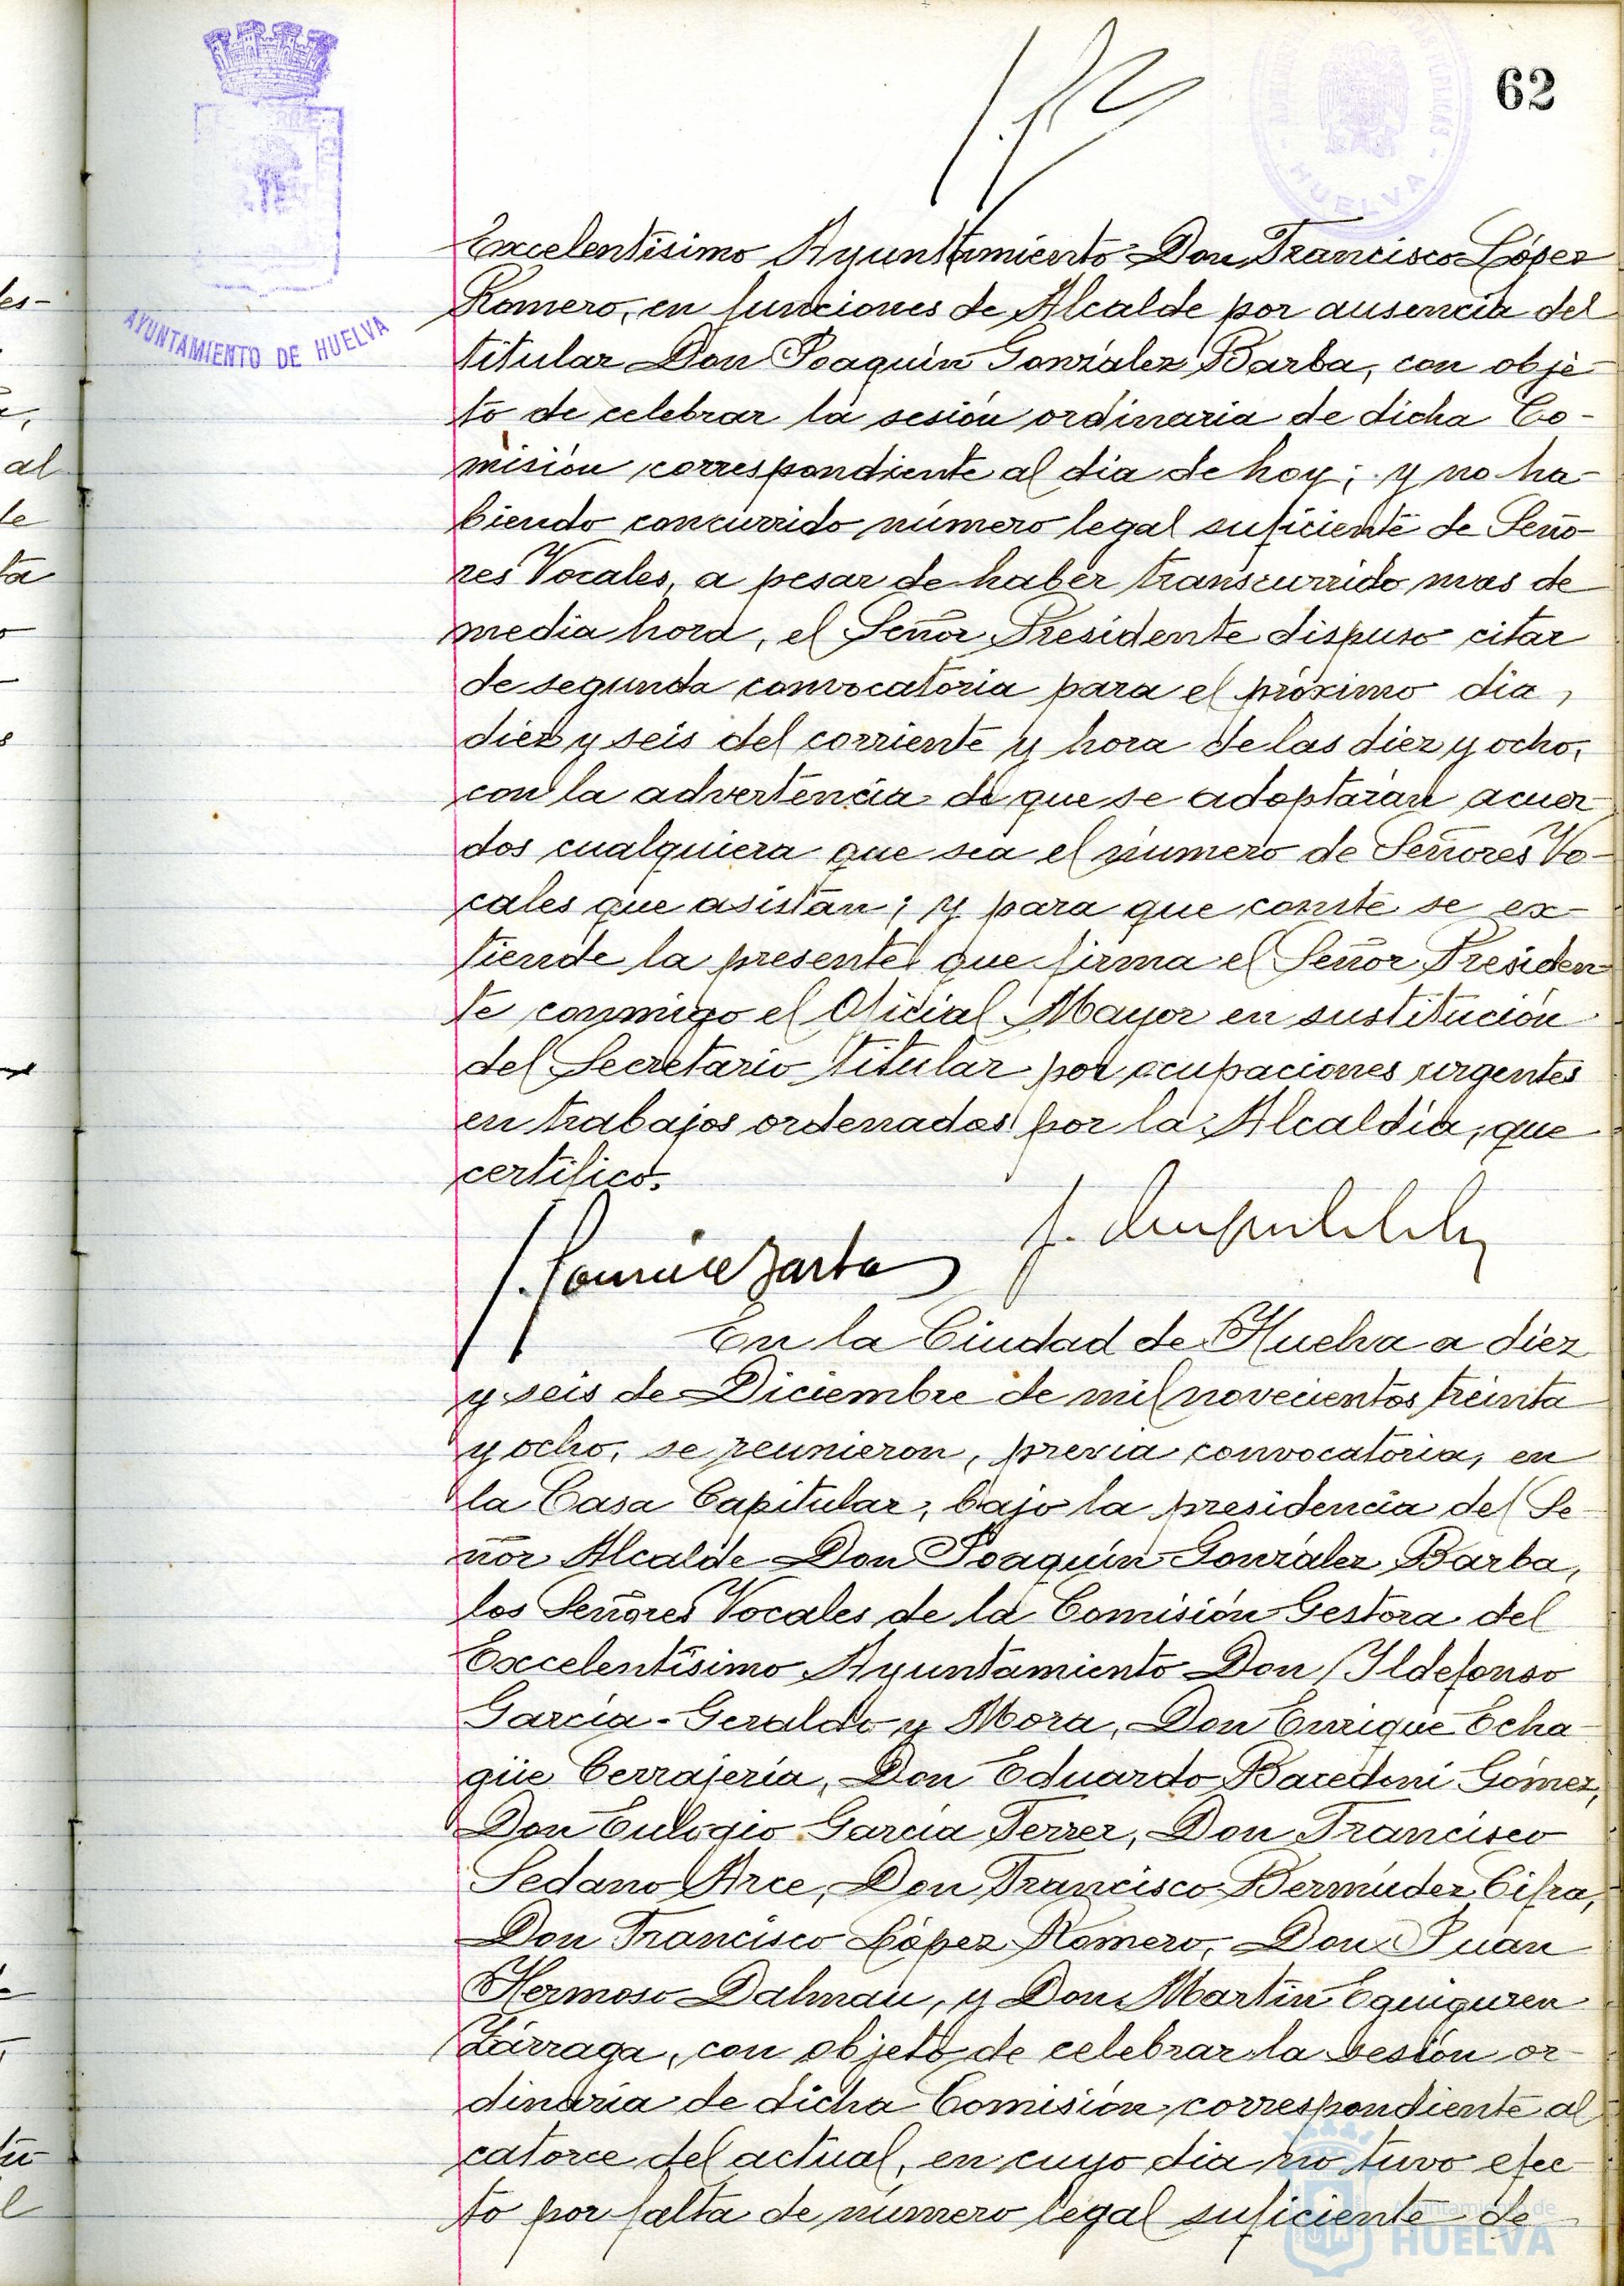 62
AYUNTAMIENTO DE HUELVA
HUELVA
Excelentísimo Ayuntamiento Don Francisco López
Romero, en funciones de Alcalde por ausencia del
titular Don Joaquín González Barba, con obje-
to de celebrar la sesión ordinaria de dicha Co-
misión correspondiente al dia de hoy; y no ha-
biendo concurrido número legal suficiente de Seño-
res Vocales, a pesar de haber transcurrido mas de
media hora, el Señor Presidente dispuso citar
de segunda convocatoria para el próximo dia,
diez y seis del corriente y hora de las diez y ocho,
con la advertencia de que se adoptarán acuer-
dos cualquiera que sea el número de Señores Vo-
cales que asistan; y para que conste se ex-
tiende la presente que firma el Señor Presiden-
te conmigo el Oficial Mayor en sustitución
del Secretario titular por ocupaciones urgentes
en trabajos ordenados por la Alcaldía, que
certifico.
En la Ciudad de Huelva a diez
y seis de Diciembre de mil novecientos treinta
y ocho, se reunieron, previa convocatoria, en
la Casa Capitular, bajo la presidencia del Se-
ñor Alcalde Don Joaquín González Barba,
los Señores Vocales de la Comisión Gestora del
Excelentísimo Ayuntamiento Don Ildefonso
García-Geraldo y Mora, Don Enrique Echa-
güe Cerrajería, Don Eduardo Bacedoni Gómez,
Don Eulogio García Ferrer, Don Francisco
Sedano Arce, Don Francisco Bermúdez Cifra,
Don Francisco López Romero, Don Juan
Hermoso Dalmau, y Don Martín Eguiguren
Zárraga, con objeto de celebrar la sesión or-
dinaria de dicha Comisión correspondiente al
catorce del actual, en cuyo dia no tuvo efec-
to por falta de número legal suficiente de
Ayuntamiento de
HUELVA